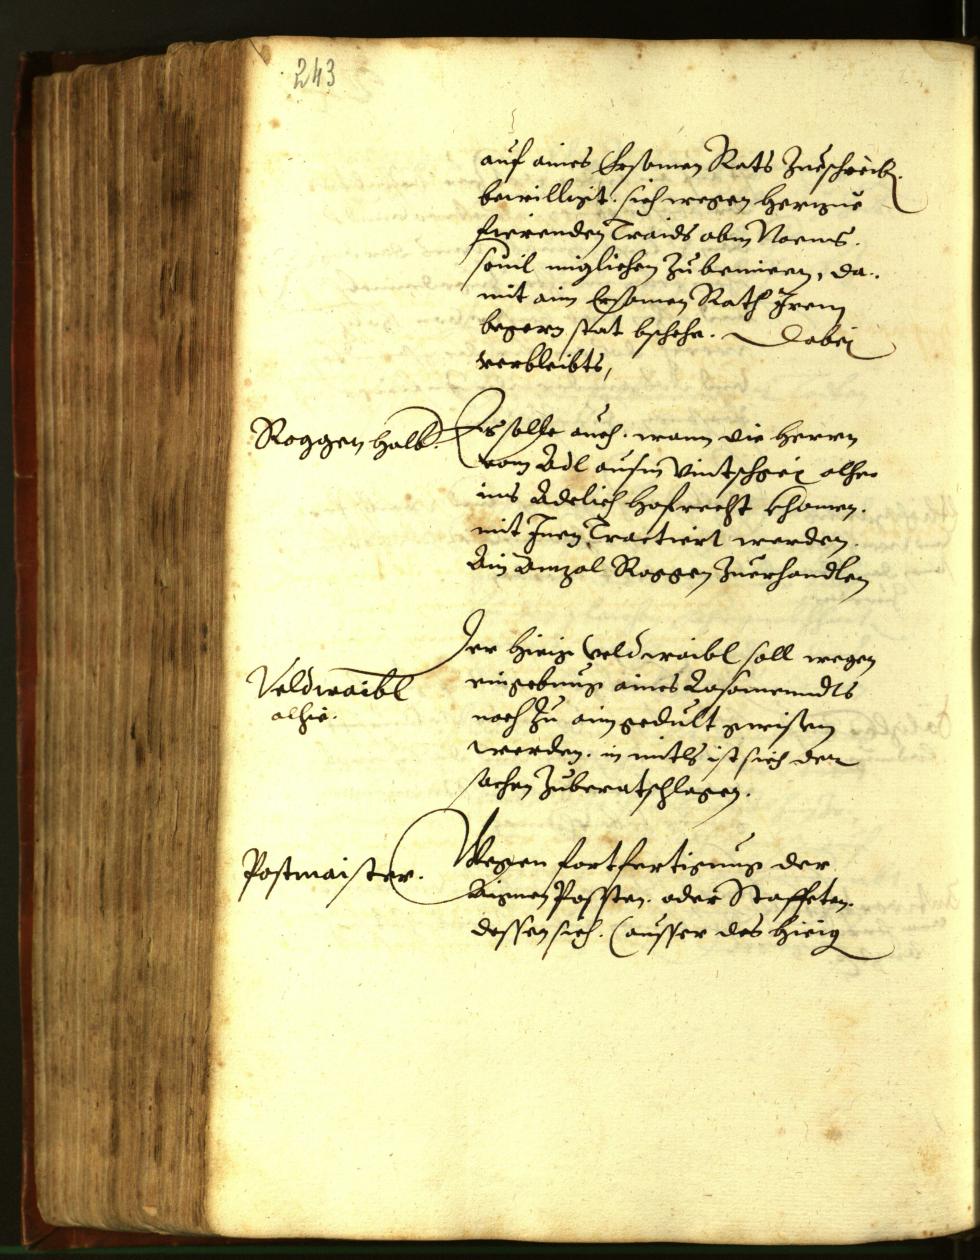 243
auf aines Ersamen Rats Zueschreib.
bewilligt. sich wegen herzue
fierenden Traids
souil miglichen Zu bemieen, da.
mit aim Ersamen Rath Irem
begern stat bschehe. Dabei
verbleibts,
Roggen halb.
Es solle auch. wann die herrn
vom Adl aufm Vintschgei alher
ins Adelich hofrecht khomen.
mit Inen Tractiert werden.
Ain Anzal Roggen Zuerhandlen
Veldwaibl
alhie.
Der hieig Veldwaibl soll wegen
eingebung aines Losamenndts
noch zu aim gedult gwisen
werden. in mitls ist sich der
sachen Zuberatschlagen.
Postmaister.
Wegen fortfertigung der
Aignen Possten. oder Staffeten.
dessen sich. (ausser des hieig